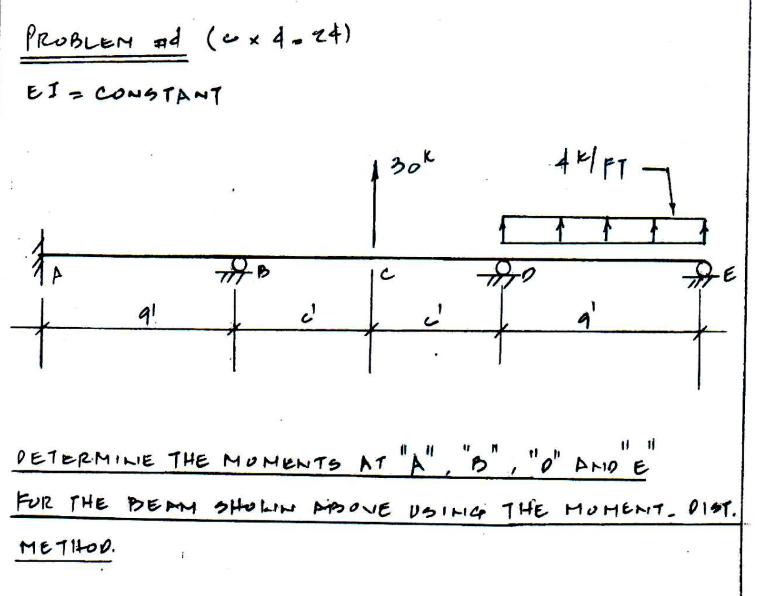 PROBLEM #4 (6 x 4 = 24)
EI = CONSTANT
30k
4 k/FT
A
B
C
D
E
9'
6'
6'
9'
DETERMINE THE MOMENTS AT "A", "B", "D" AND "E"
FOR THE BEAM SHOWN ABOVE USING THE MOMENT-DIST.
METHOD.